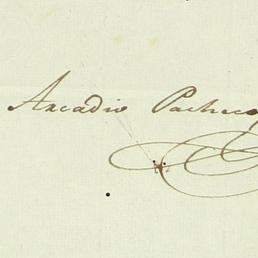 Arcadio Pacheco